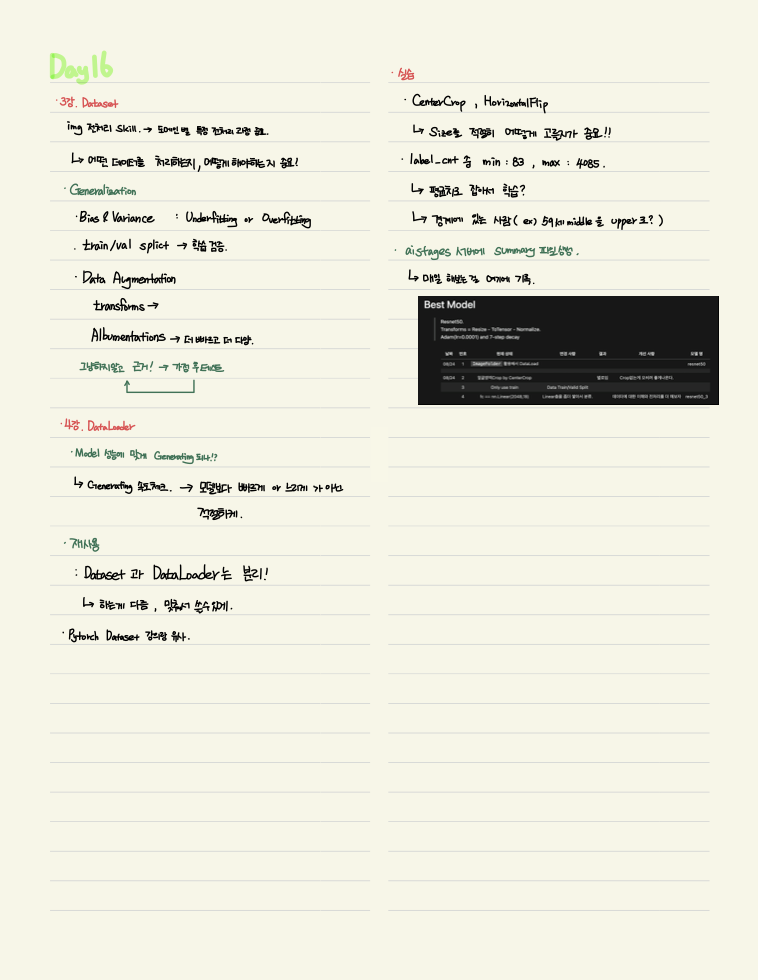 Day16
· 3강. Dataset
img 전처리 skill. → 도메인 별 특정 전처리 과정 중요.
↳ 어떤 데이터를 처리하는지, 어떻게 해야하는지 중요!
· Generalization
· Bias & Variance : Underfitting or Overfitting
· train/val splict → 학습 검증.
· Data Augmentation
transforms →
Albumentations → 더 빠르고 더 다양.
그냥하지말고 근거! → 가정 후 테스트
· 4강. DataLoader
· Model 성능에 맞게 Generating 되나!?
↳ Generating 속도체크. → 모델보다 빠르게 or 느리게 가 아닌
적절하게.
· 재사용
: Dataset 과 DataLoader는 분리!
↳ 하는게 다름, 맞춰서 쓸수있게.
· Pytorch Dataset 강의랑 유사.
· 실습
· CenterCrop , HorizontalFlip
↳ Size를 적절히 어떻게 고를지가 중요!!
· label_cnt 중 min : 83 , max : 4085.
↳ 평균치로 잡아서 학습?
↳ 경계에 있는 사람( ex) 59세 middle을 upper로? )
· aistages 서버에 summary 파일생성.
↳ 매일 해보는걸 여기에 기록.
Best Model
Resnet50.
Transforms = Resize - ToTensor - Normalize.
Adam(lr=0.0001) and 7-step decay
날짜 번호 현재 상태 변경 사항 결과 개선 사항 모델 명
08/24 1 ImageFolder 활용해서 DataLoad resnet50
08/24 2 얼굴영역Crop by CenterCrop 별로임
3 Only use train Data Train/Valid Split
4 resnet50_3